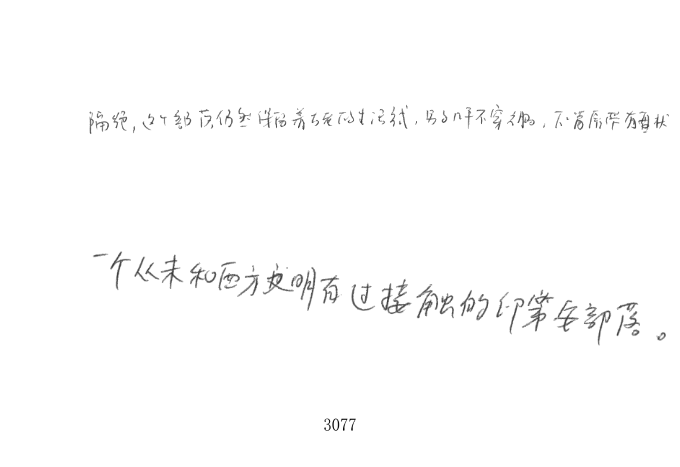 隔绝,这个部落仍然保留着古老的生活方式,男子几乎不穿衣服,不管
一个从未和西方文明有过接触的印第安部落。
3077